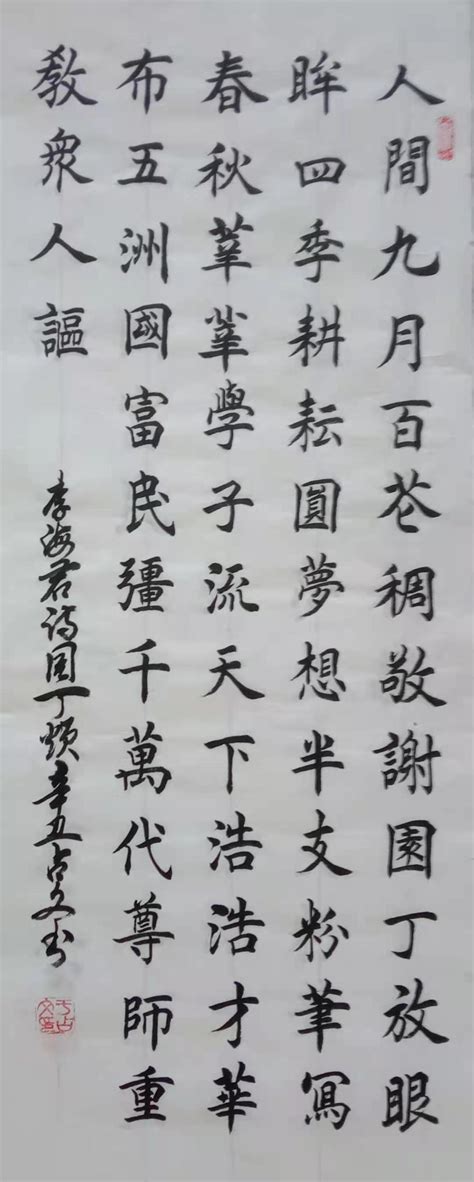 人間九月百花稠敬謝園丁放眼
眸四季耕耘圓夢想半支粉筆寫
春秋莘莘學子流天下浩浩才華
布五洲國富民彊千萬代尊師重
教衆人謳
李海君诗园丁颂辛丑占文书